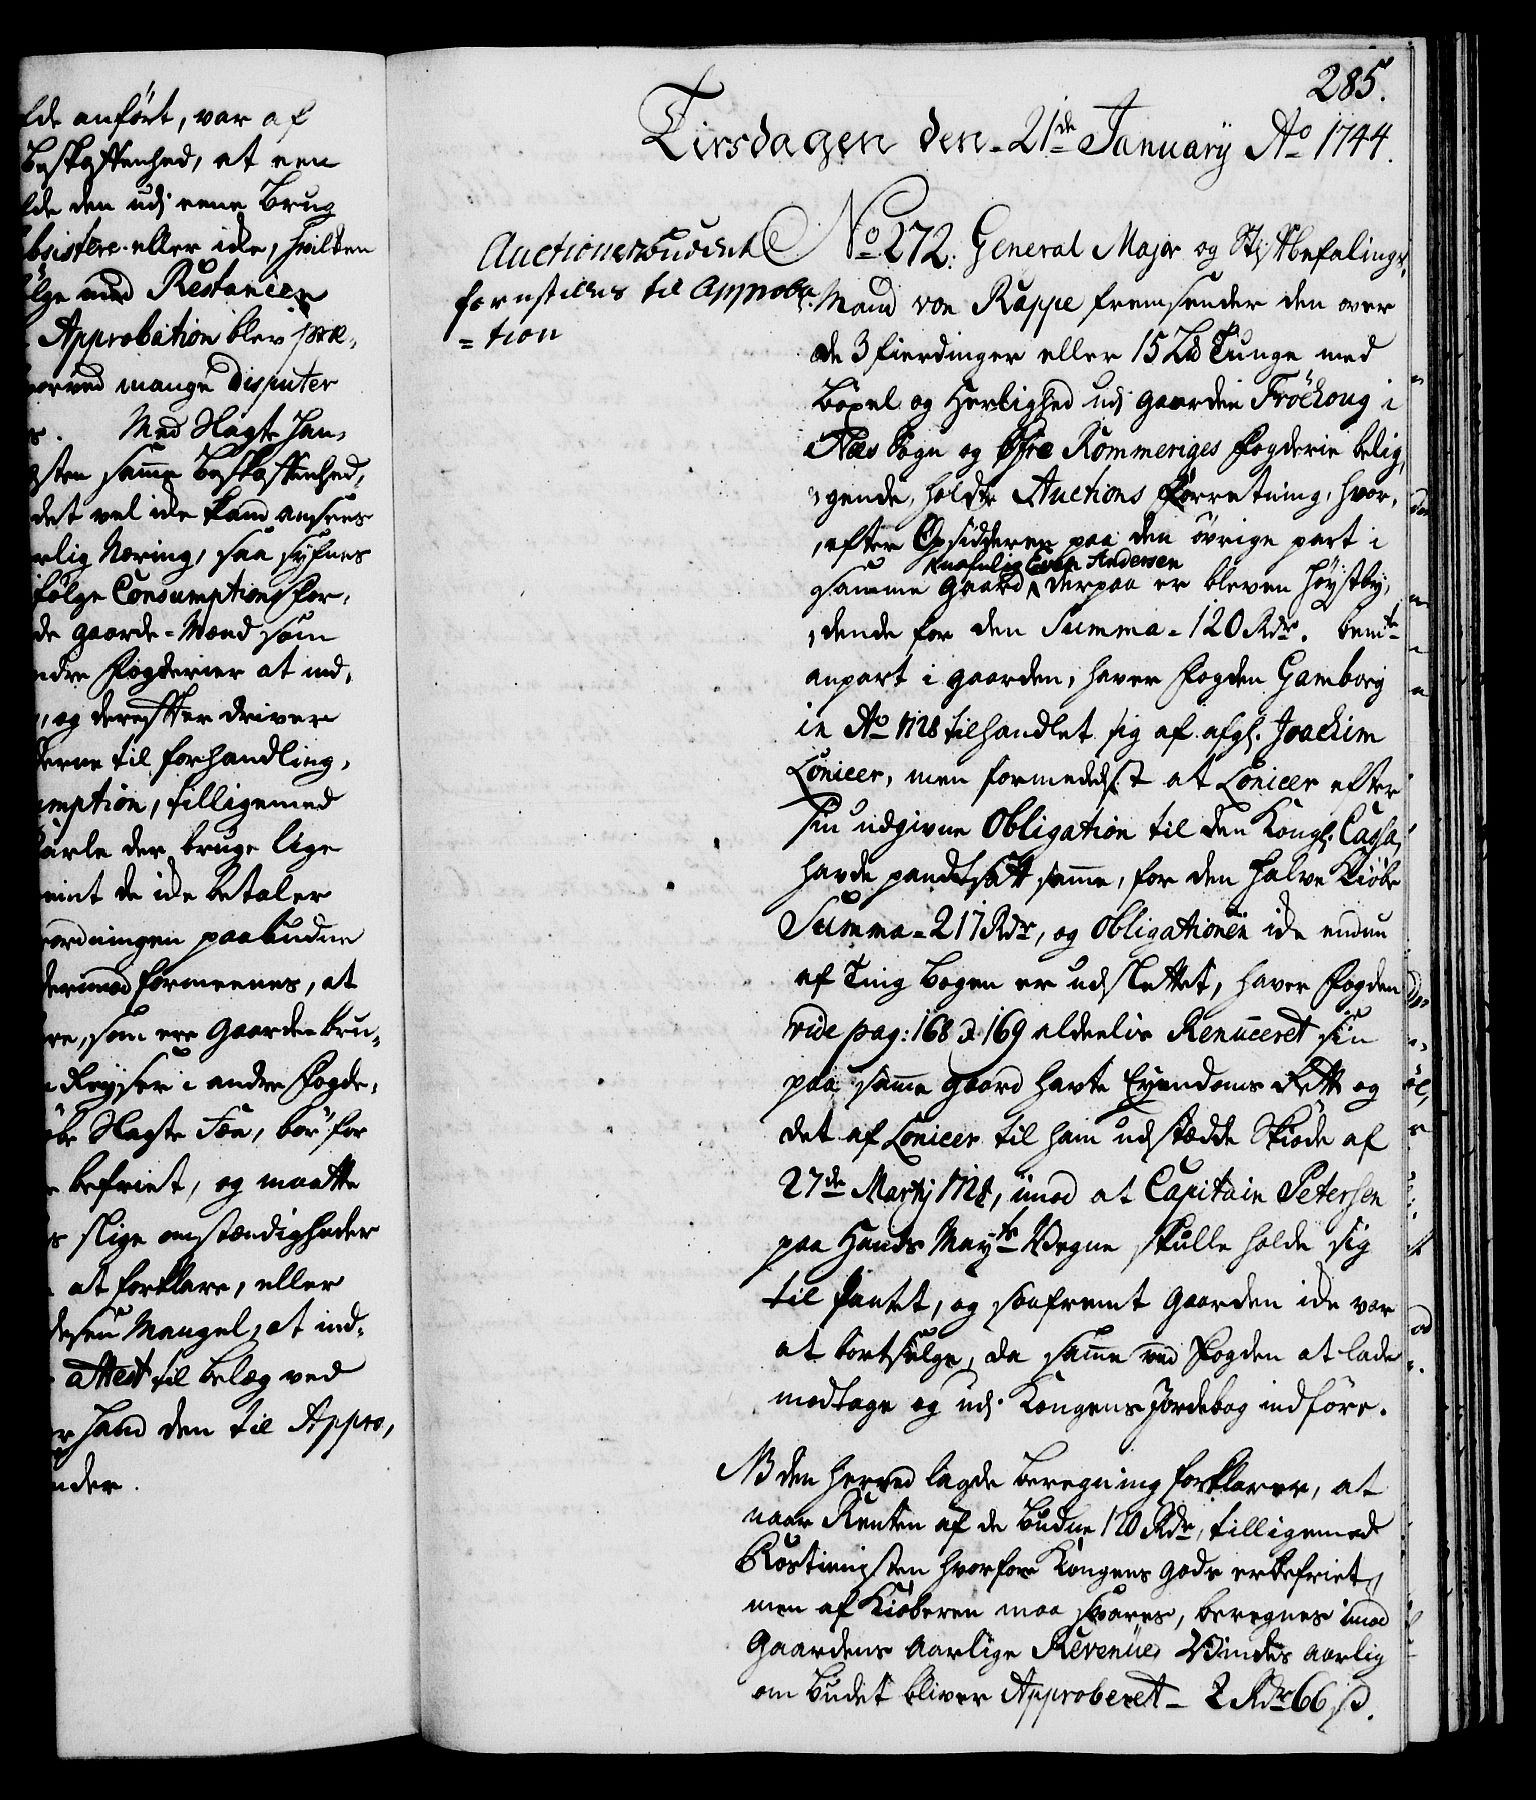 lde anført, var af
Beskaffenhed, at een
lde den udj eene Brug
bsistere eller icke, hvilken
ølge med Restancer
Approbation blev præ,
orved mange Disputer
s. Med Slagte Han,
gsten samme Beskaffenhed,
det vel icke kand ansees
rlig Næring, saa synes
følge Consumptions For,
de Gaarde-Mænd som
ndre Fogderier at ind,
, og derefter driver
derne til forhandling,
umption, tilligemed
Karle der bruge lige
eint de icke betaler
ordningen paabudne
derimod formeenes, at
re, som ere Gaardebru,
Reyser i andre Fogde,
øbe Slagte Føe, bør for
befriet, og maatte
s slige omstændigheder
at forklare, eller
desen Mangel, at ind,
attest til belæg ved
r hand den til Appro,
nder.
285.
Tirsdagen den 21de January Ao 1744.
Auctionsbudet
fornstilles til Approba
=tion
No 272. General Major og Stiftbefalings,
Mand von Rappe fremsender den over
de 3 fierdinger eller 15 Lb Tunge med
Boxel og Herlighed udj gaarden Fröchoug i
Næs Sogn og Øfre Rommeriges Fogderie belig,
,gende, holdte Auctions Forretning, hvor,
,efter Opsidderen paa den øvrige part i
Nafnlig Even Andersen
samme Gaard, derpaa er bleven Høystby,
,dende for den Summa - 120 Rdr. bemte
anpart i gaarden, haver Fogden Gamborg
in Ao 1728 tilhandlet sig af afg. Joachim
Lonicer, men formedelst at Lonicer efter
sin udgivne Obligation til den Kongl. Cassa,
havde pandtsatt samme, for den halve Kiøbe
Summa - 217 Rdr, og Obligationen icke endnu
af Ting bogen er udslettet, haver Fogden
vide pag: 168 & 169 aldeelis Renunceret sin
paa samme gaard havte Eyendoms Rett og
det af Lonicer til ham udstædde Skiøde af
27de Martij 1728, imod at Capitain Petersen
paa Hands Mayts Vegne skulle holde sig
til Pantet, og saafremt Gaarden icke var
at bortsælge, da samme ved Fogden at lade
modtage og udj Kongens Jordebog indføre.
NB den herved lagde beregning forklarer, at
naar Renten af de budne 120 Rdr, tilligemed
Rostienisten hvorfore Kongens gods er befriet,
men af Kiøberen maa svares, beregnes imod
Gaardens Aarlige Revenüe, Vindes aarlig
om budet bliver Approberet - 2 Rdr 66 s.